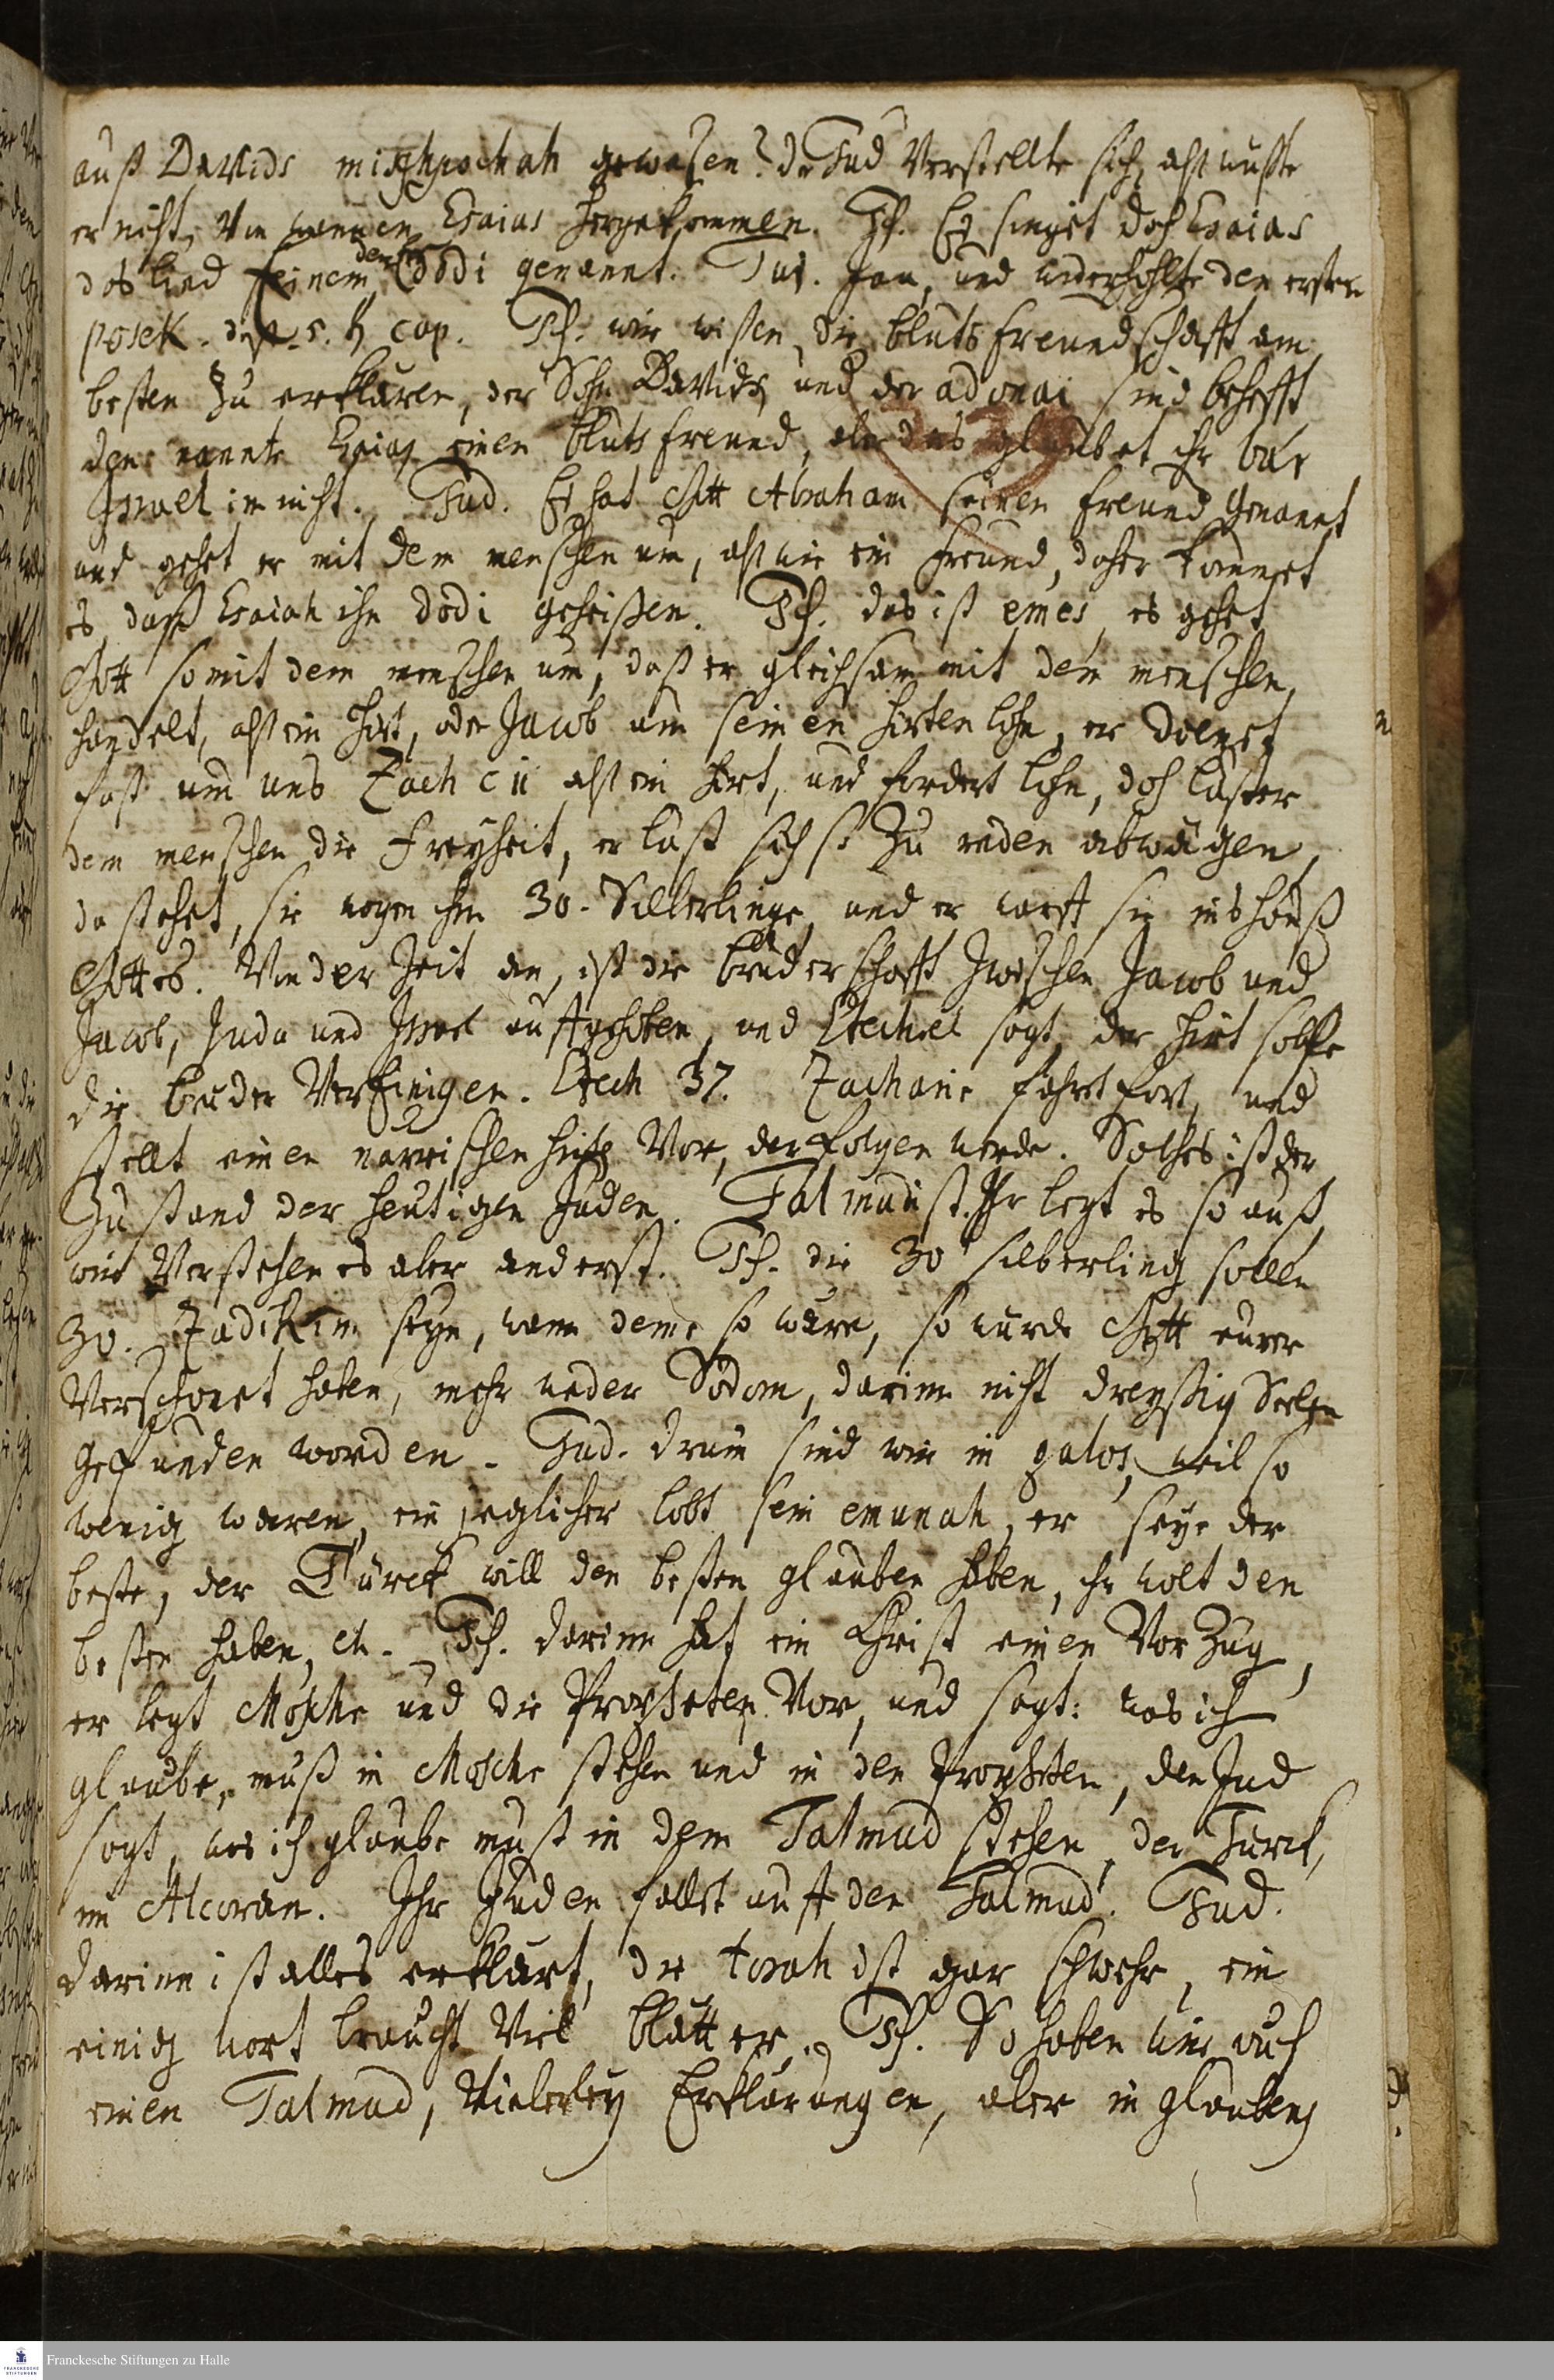 auß Davids mischpochah gewesen? der Jud verstellte sich, alß wuste
er nicht, von wannen Esaias hergekommen. Ich. Es singet doch Esaias
das lied seinem, den er dodi genannt. Jud. Jau, und widerhohlte den ersten
posek. deß 5. cap. Ich. wir wißen die blutsfreundschafft am
besten zu erklären, der Sohn Davids und der adonai sind behefft
den nannte Esaias einen blutsfreund, aber das glaubet ihr bar
Israel im nicht. Jud. Es hat Gott Abraham seinen freund genannt
und gehet er mit dem menschen um, alß wie ein freund, daher kommet
es, daß Esaiah ihn dodi geheißen. Ich. das ist emes, es gehet
Gott so mit dem menschen um, daß er gleichsam mit dem menschen
handelt, alß ein Hirt, oder Jacob um seinen hirtenlohn, er dienet
fast um uns Zach c 11 alß ein hirt, und fordert lohn, doch läst er
dem menschen die freyheit, er läst sich so zu reden abwägen,
da stehet, sie wogen ihm 30. Silberlinge, und er warff sie ins hauß
Gottes. Von der Zeit an, ist die bruderschafft zwischen Jacob und
Jacob, Juda und Israel auffgehoben, und Ezechiel sagt, der hirt solle
die bruder vereinigen. Ezech 37. Zacharie fahret fort, und
stellt einen närrischen hirten vor, der folgen werde. Solches ist der
Zustand der heutigen Juden. Talmudist. Ihr legt es so auß,
wir verstehen es aber anderst. Ich. die 30 silberling sollen
30. Zadikim seyn, wann deme so wäre, so wurde Gott eurer
verschonet haben, mehr weder Sodom, darinn nicht dreyßig Seelen
gefunden worden. Jud. drum sind wir in galos, weil so
wenig waren, ein jeglicher lobt sein emunah, er seye der
beste, der Türck will den besten glauben haben, ihr wolt den
besten haben, etc. Ich. darinn hat ein Christ einen Vorzug,
er legt Mosche und die Propheten vor, und sagt: was ich
glaube, muß in Mosche stehen und in den Propheten, der Jud
sagt, was ich glaube muß in dem Talmud stehen, der Türck,
im Alcoran. Ihr Juden fallet auff den Talmud. Jud.
darinn ist alles erklärt, die torah ist gar schwehr, ein
einig wort braucht viel blätter. Ich. So haben wir auch
einen Talmud, vielerley Erklärungen, aber in glaubens
Franckesche Stiftungen zu Halle